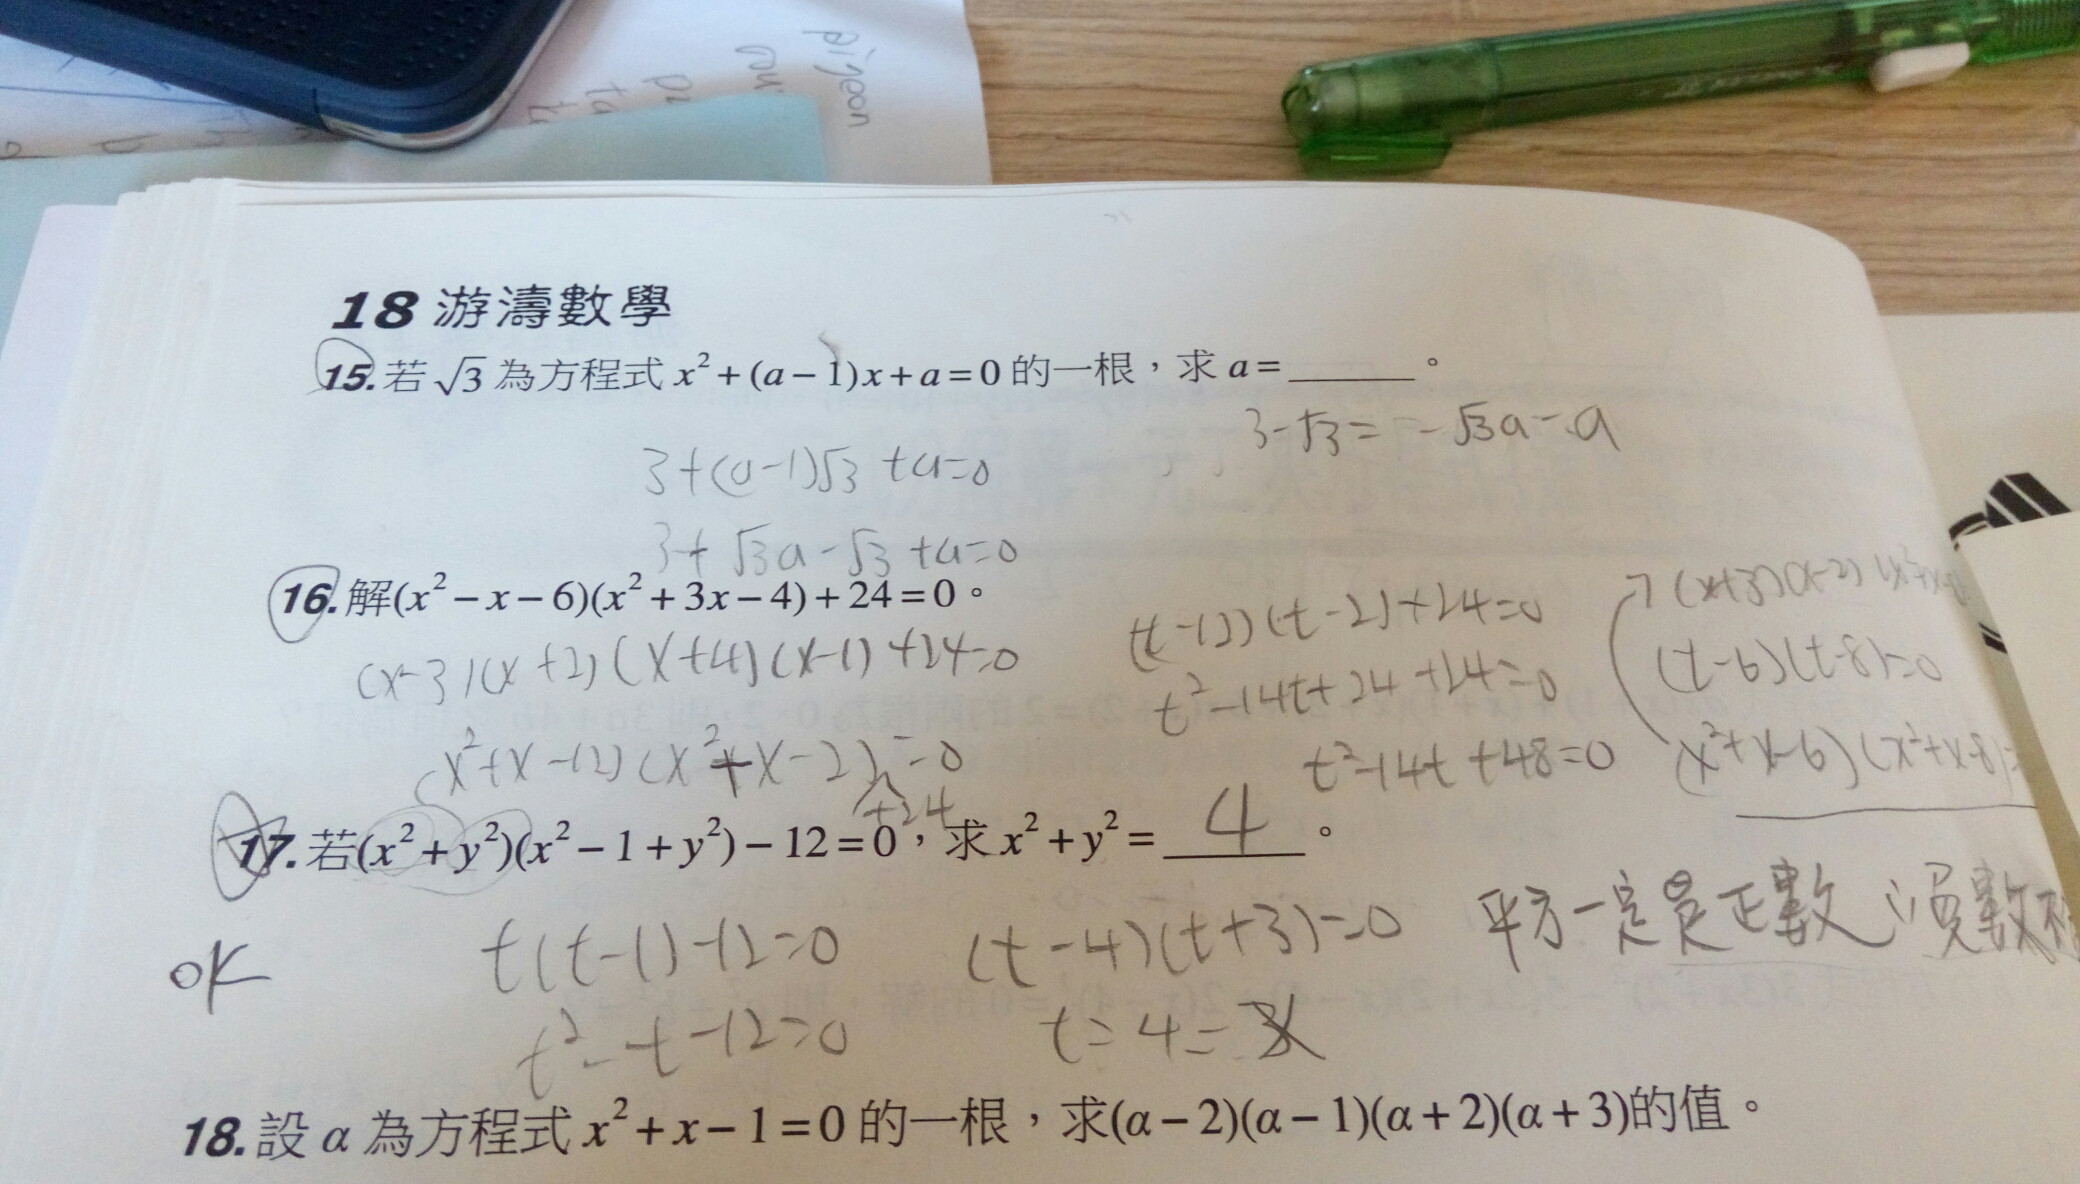 pigeon
18 游濤數學
15. 若 √3 為方程式 x²+(a−1)x+a=0 的一根，求 a=______。
3-√3= -√3a-a
3+(a-1)√3 +a=0
3+√3a-√3 +a=0
16. 解(x²−x−6)(x²+3x−4)+24=0。
(x-3)(x+2)(x+4)(x-1)+24=0
(x²+x-12)(x²+x-2)=0
+24
(t-12)(t-2)+24=0
t²-14t+24+24=0
t²-14t+48=0
(x+3)(x-2)
(t-6)(t-8)=0
(x²+x-6)(x²+x-8)=
17. 若(x²+y²)(x²−1+y²)−12=0，求 x²+y²= 4 。
ok
t(t-1)-12=0
t²-t-12=0
(t-4)(t+3)=0
t=4=
平方一定是正數
18. 設 α 為方程式 x²+x−1=0 的一根，求(α−2)(α−1)(α+2)(α+3)的值。